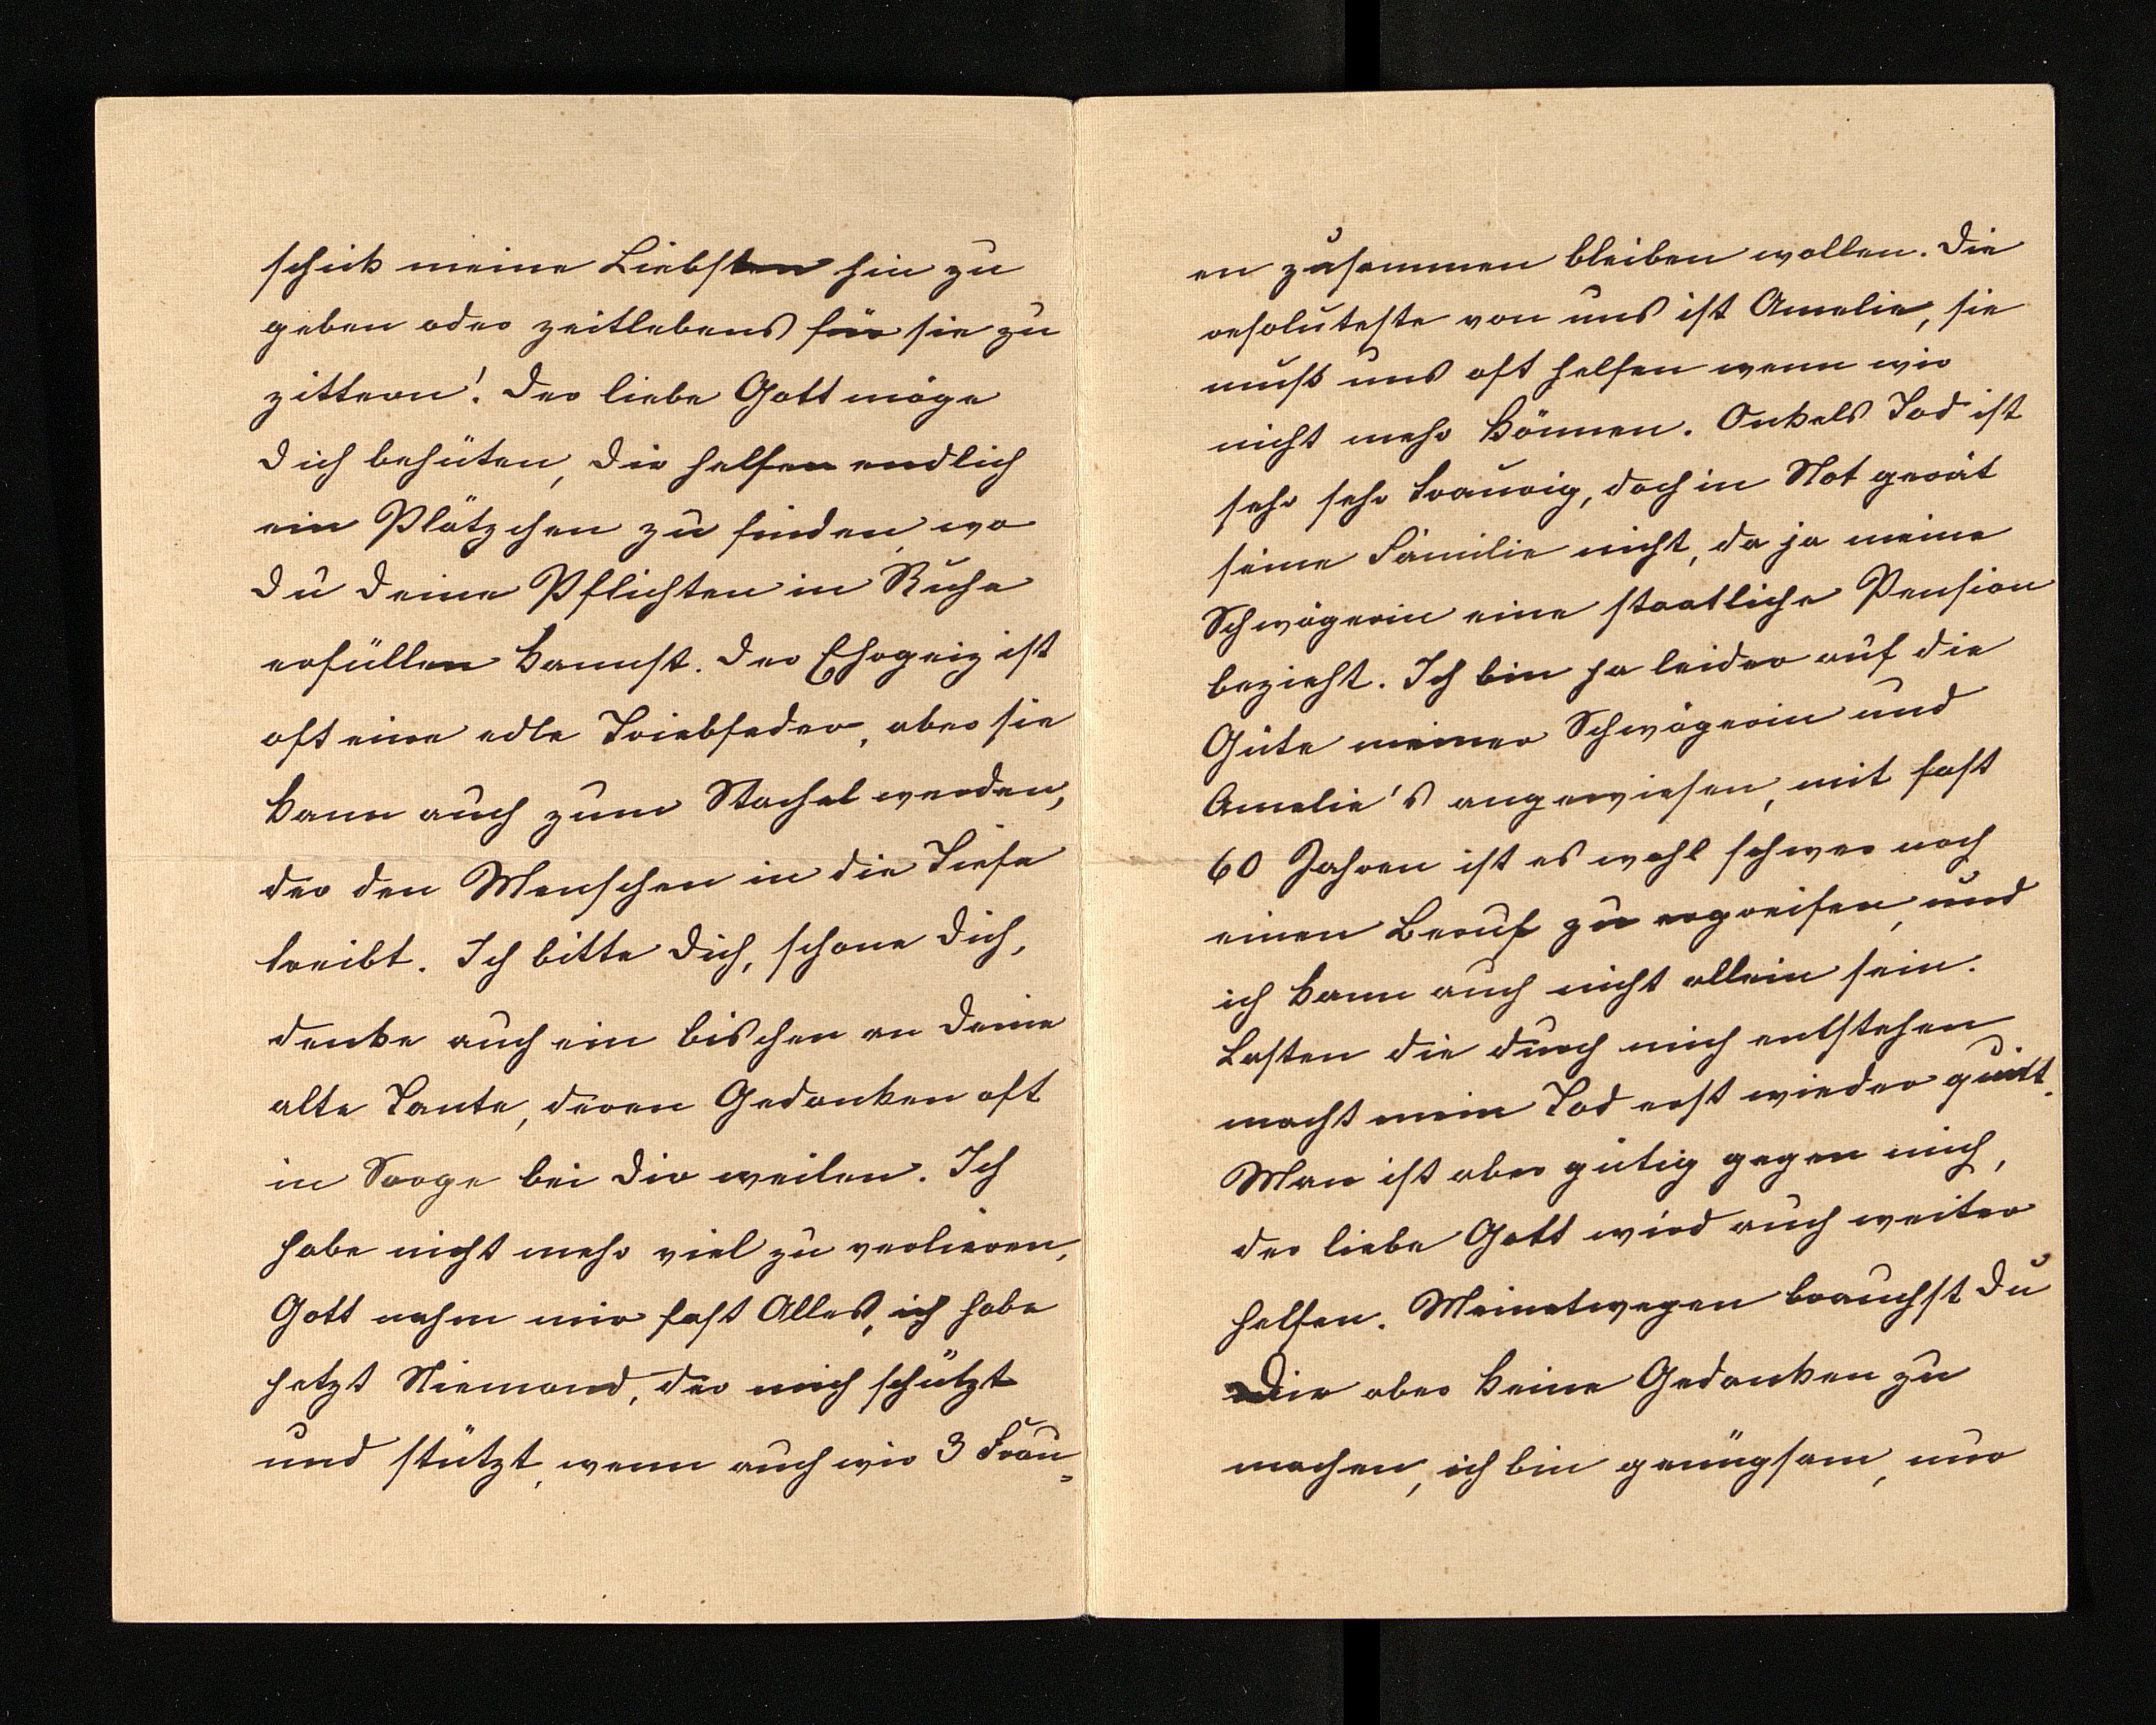 schick meine Liebsten hin zu
geben oder zeitlebens für sie zu
zittern! Der liebe Gott möge
Dich behüten, Dir helfen endlich
ein Plätzchen zu finden, wo
Du Deine Pflichten in Ruhe
erfüllen kannst. Der Ehrgeiz ist
oft eine edle Triebfeder, aber sie
kann auch zum Stachel werden,
der den Menschen in die Tiefe
treibt. Ich bitte Dich, schone Dich,
denke auch ein bischen an Deine
alte Tante, deren Gedanken oft
in Sorge bei Dir weilen. Ich
habe nicht mehr viel zu verlieren,
Gott nahm mir fast Alles, ich habe
jetzt Niemand, der mich schützt
und stützt, wenn auch wir 3 Frau-
en zusammen bleiben wollen. Die
resoluteste von uns ist Amelie, sie
muß uns oft helfen wenn wir
nicht mehr können. Onkels Tod ist
sehr sehr traurig, doch in Not gerät
seine Familie nicht, da ja meine
Schwägerin eine staatliche Pension
bezieht. Ich bin ja leider auf die
Güte meiner Schwägerin und
Amelie's angewiesen, mit fast
60 Jahren ist es wohl schwer noch
einen Beruf zu ergreifen, und
ich kann auch nicht allein sein.
Lasten die durch mich entstehen
macht mein Tod erst wieder quitt.
Man ist aber gütig gegen mich,
der liebe Gott wird auch weiter
helfen. Meinetwegen brauchst Du
Dir aber keine Gedanken zu
machen, ich bin genügsam, nur